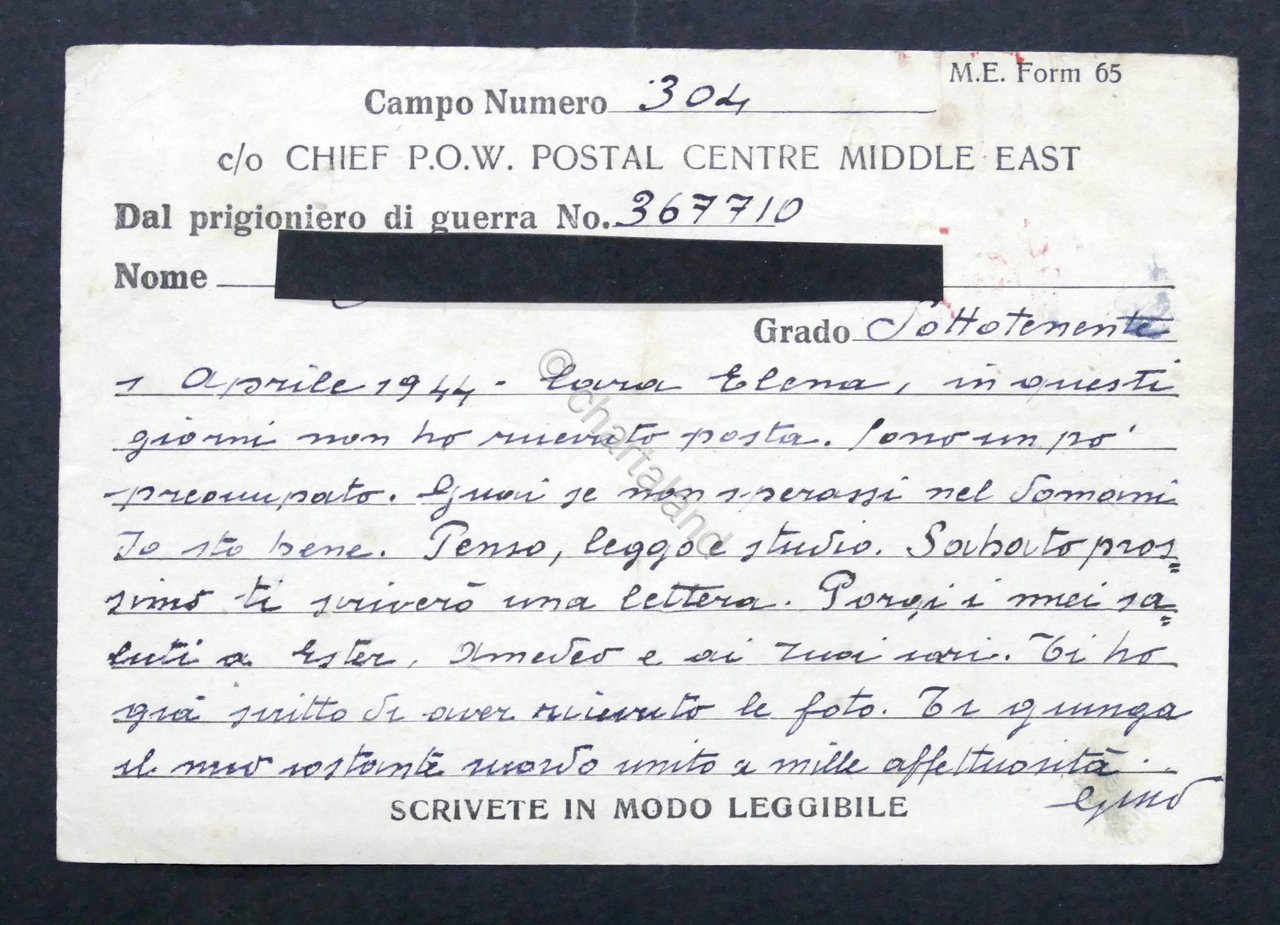 M.E. Form 65
Campo Numero 304
c/o CHIEF P.O.W. POSTAL CENTRE MIDDLE EAST
Dal prigioniero di guerra No. 367710
Nome
Grado Sottotenente
1 Aprile 1944 - Cara Elena, in questi
giorni non ho ricevuto posta. Sono un po'
preoccupato. Guai se non sperassi nel domani
Io sto bene. Penso, leggo e studio. Sabato pros=
simo ti scriverò una lettera. Porgi i miei sa=
luti a Ester, Amedeo e ai tuoi cari. Ti ho
già scritto di aver ricevuto le foto. Ti giunga
il mio costante ricordo unito a mille affettuosità.
Gino
SCRIVETE IN MODO LEGGIBILE
© chartaland